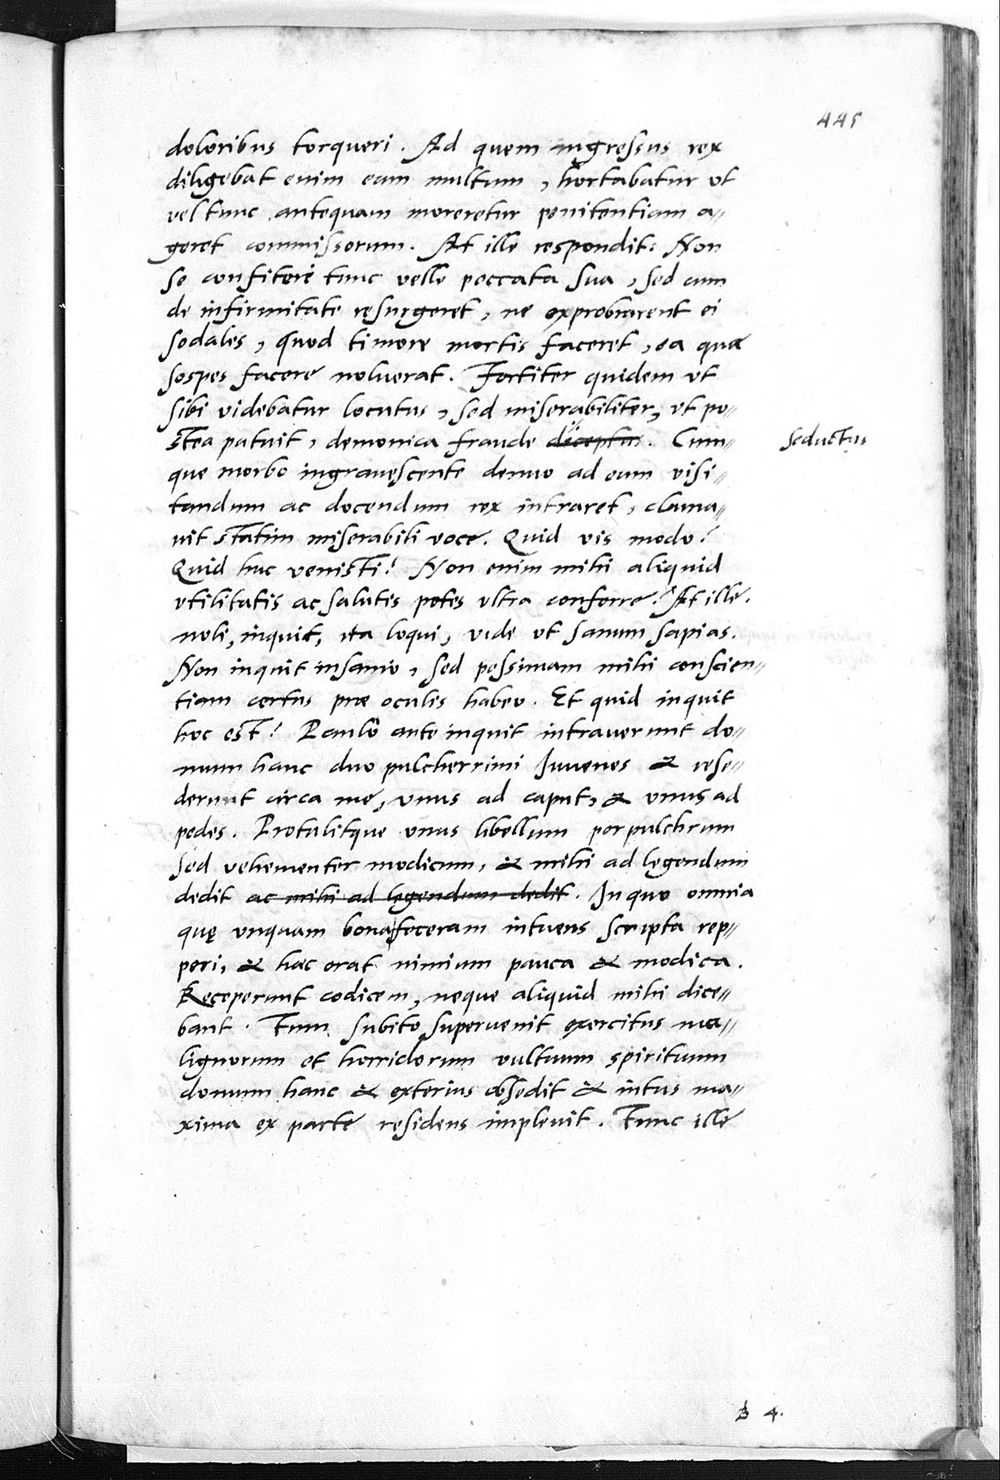 445
doloribus torqueri. Ad quem ingressus rex
diligebat enim eum multum, hortabatur vt
vel tunc antequam moreretur penitentiam a//
geret commissorum. At ille respondit: Non
se confiteri tunc velle peccata sua, sed cum
de infirmitate resurgeret, ne exprobrarent ei
sodales, quod timore mortis faceret, ea quæ
sospes facere noluerat. Fortiter quidem vt
sibi videbatur locutus, sed miserabiliter, vt po//
stea patuit, demonica fraude deceptus. Cum//
seductus
que morbo ingravescente denuo ad eum visi//
tandum ac docendum rex intraret, clama//
vit statim miserabili voce. Quid vis modo?
Quid huc venisti? Non enim mihi aliquid
vtilitatis ac salutis potes vltra conferre? At ille.
noli, inquit, ita loqui, vide vt sanum sapias.
Non inquit insanio, sed pessimam mihi conscien//
tiam certus præ oculis habeo. Et quid inquit
hoc est? Paulo ante inquit intraverunt do//
mum hanc duo pulcherrimi Iuvenes & rese//
derunt circa me, vnus ad caput, & vnus ad
pedes. Protulitque vnus libellum perpulchrum
sed vehementer modicum, & mihi ad legendum
dedit ac mihi ad legendum dedit. In quo omnia
quę vnquam bona feceram intuens scripta rep//
peri, & hæc erat nimium pauca & modica.
Receperunt codicem, neque aliquid mihi dice//
bant. Tum subito supervenit exercitus ma//
lignorum et horridorum vultuum spirituum
domum hanc & exterius obsedit & intus ma//
xima ex parte residens implevit. Tunc ille
4.